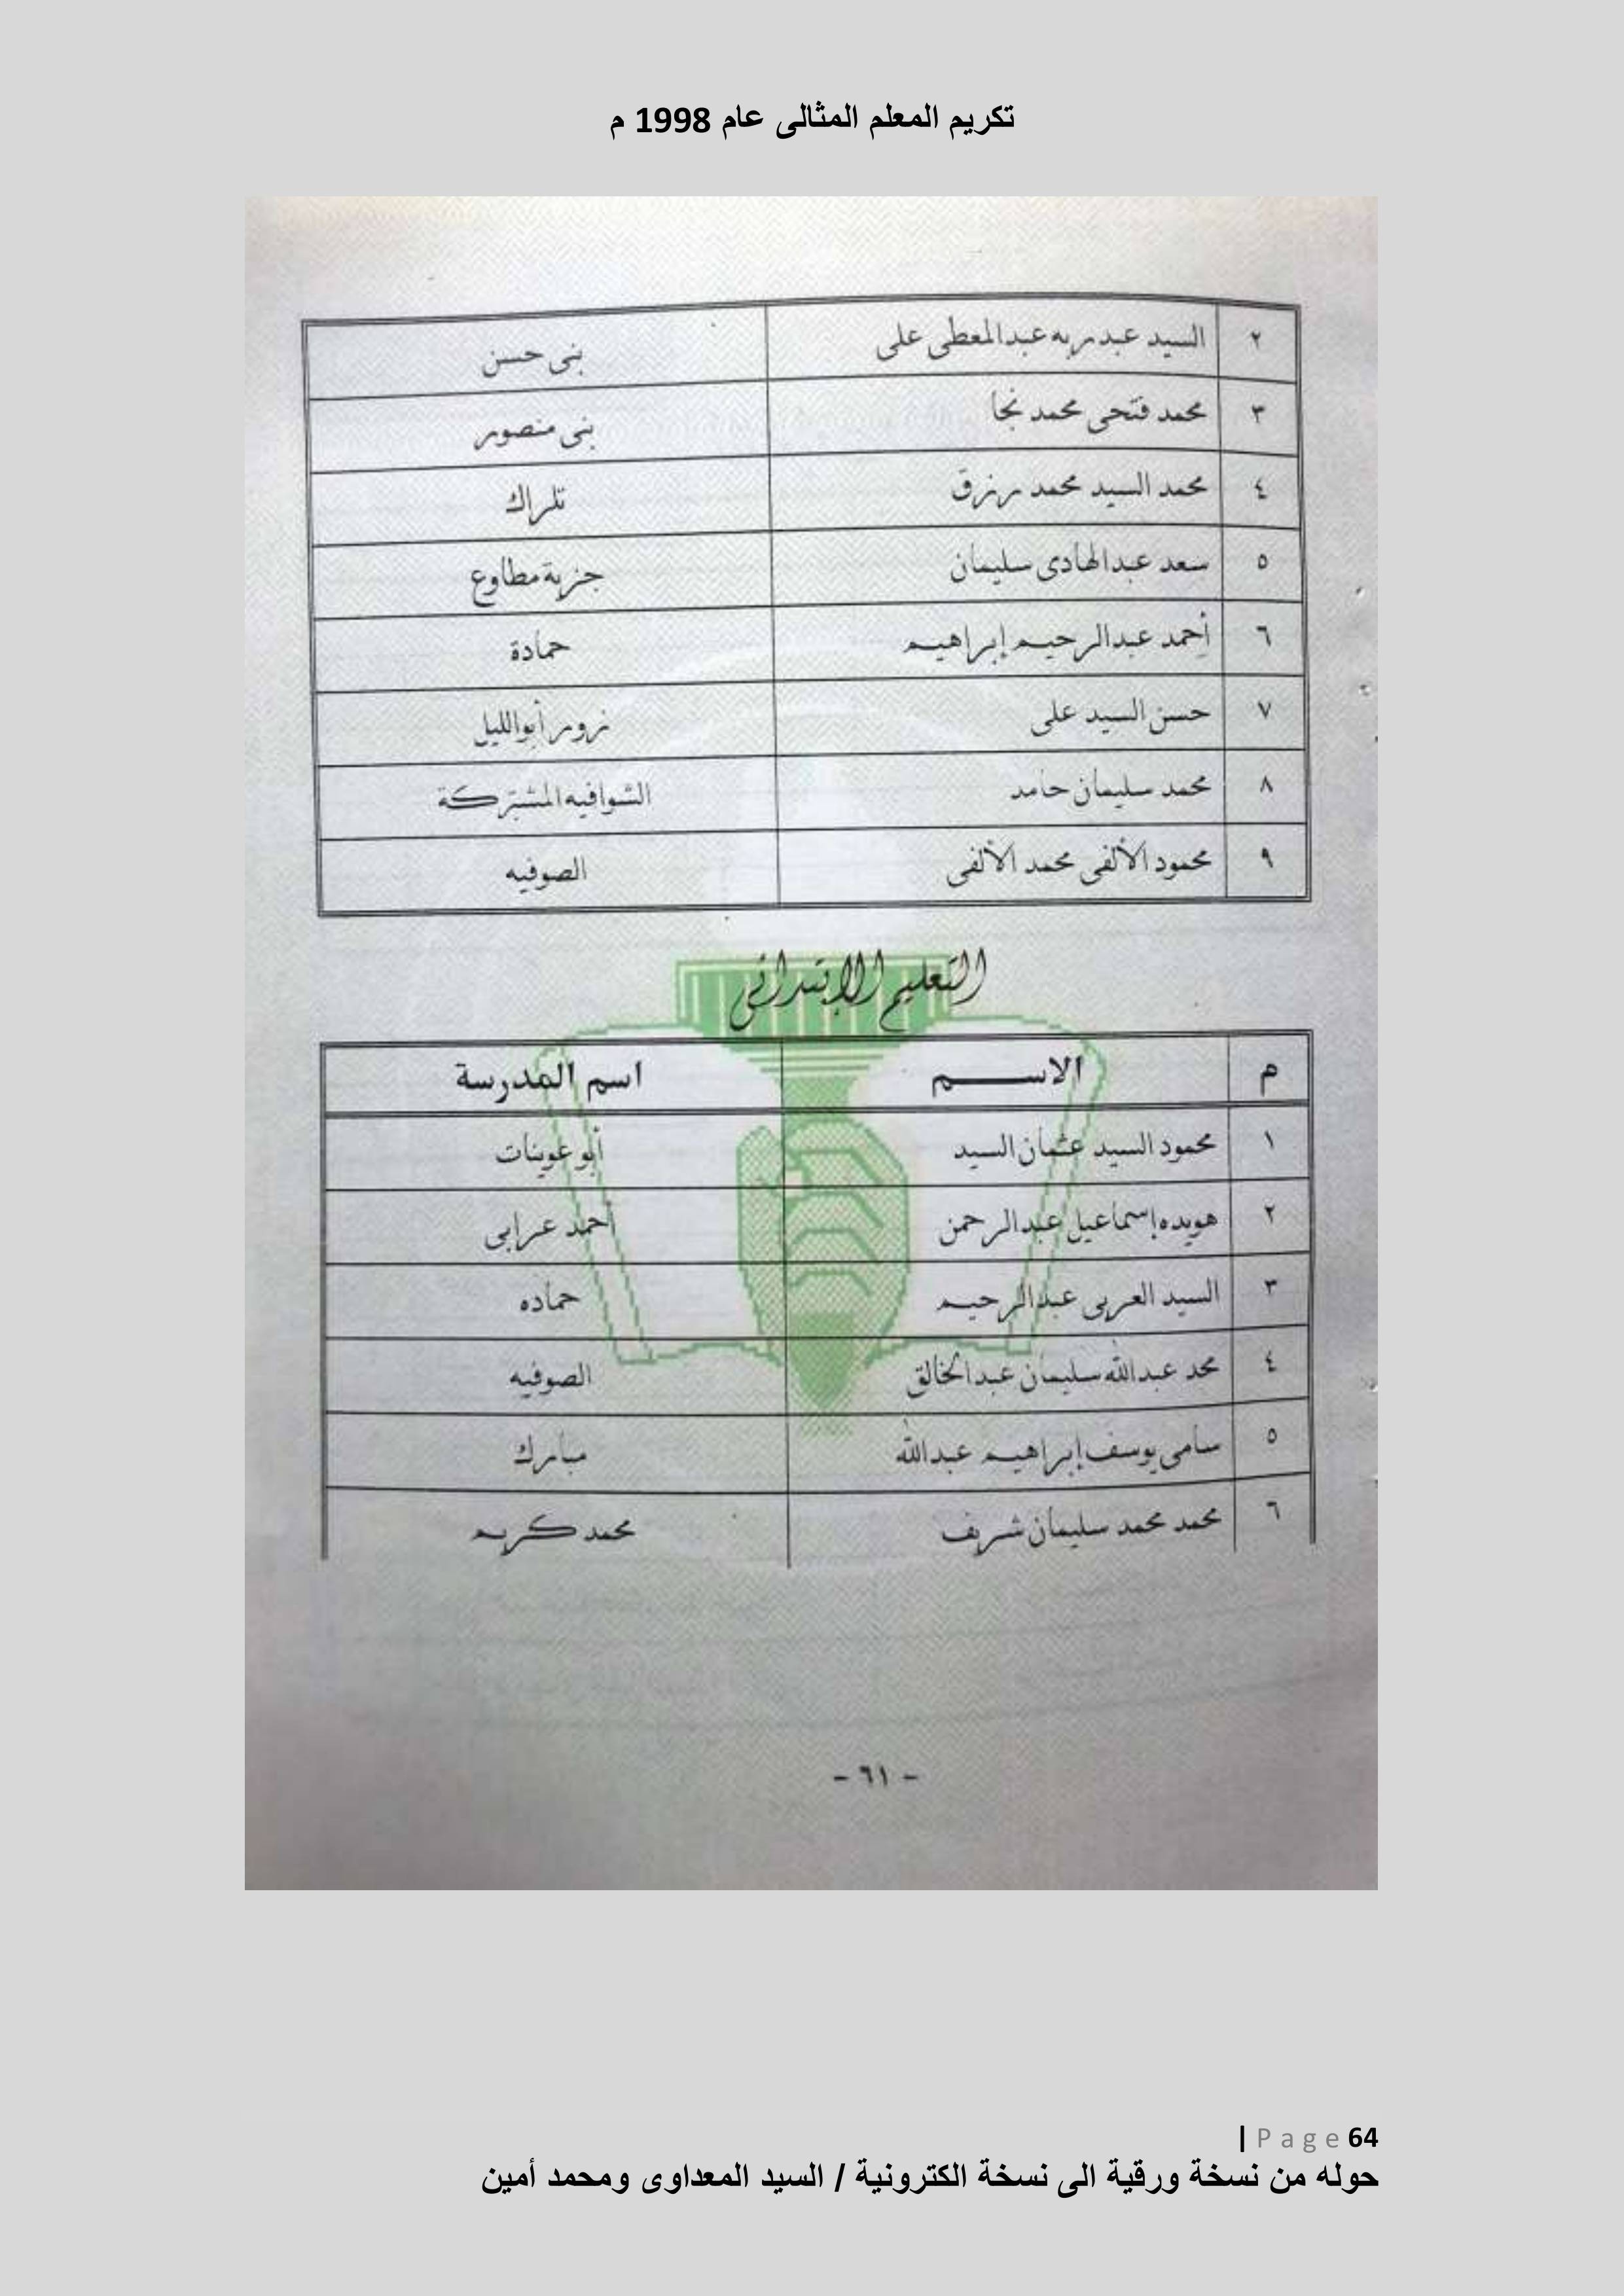 تكريم المعلم المثالى عام 1998 م
٢ السيد عبدربه عبدالمعطى على بنى حسن
٣ محمد فتحى محمد نجا بنى منصور
٤ محمد السيد محمد رزق تلراك
٥ سعد عبدالهادى سليمان جزيرة مطاوع
٦ أحمد عبدالرحيم إبراهيم حمادة
٧ حسن السيد على نزور أبوالليل
٨ محمد سليمان حامد الشوافيه المشتركة
٩ محمود الألفى محمد الألفى الصوفيه
التعليم الإبتدائى
م الاســـم اسم المدرسة
١ محمود السيد عثمان السيد أبو عوينات
٢ هويده إسماعيل عبدالرحمن أحمد عرابى
٣ السيد العربى عبدالرحيم حماده
٤ محمد عبدالله سليمان عبدالخالق الصوفيه
٥ سامى يوسف إبراهيم عبدالله مبارك
٦ محمد محمد سليمان شريف محمد كريم
- ٦١ -
| Page 64
حوله من نسخة ورقية الى نسخة الكترونية / السيد المعداوى ومحمد أمين